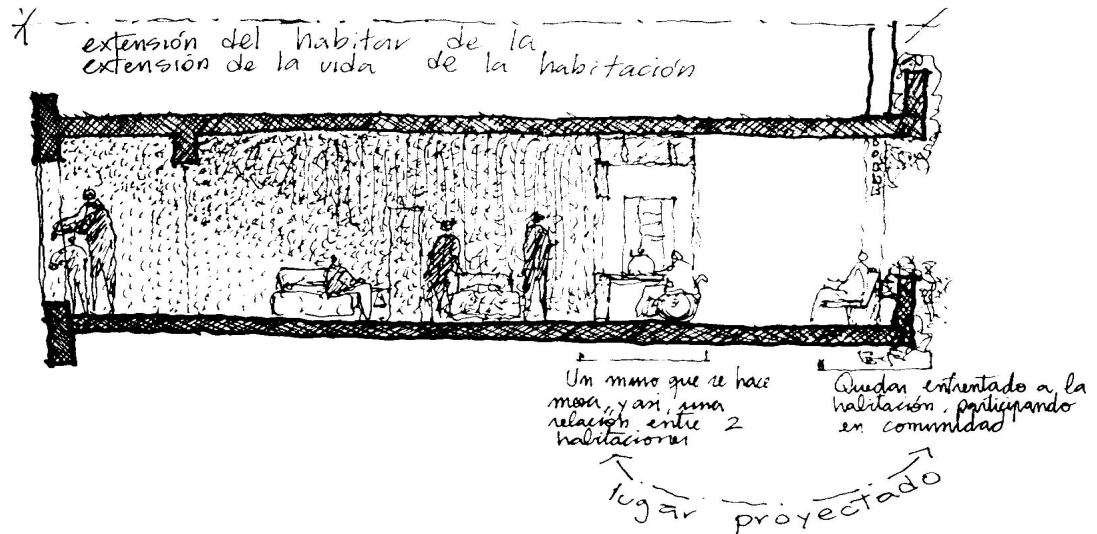 extensión del habitar de la
extensión de la vida de la habitación
Un muro que se hace
mesa, y así, una
relación entre 2
habitaciones
Quedar enfrentado a la
habitación, participando
en comunidad
lugar proyectado